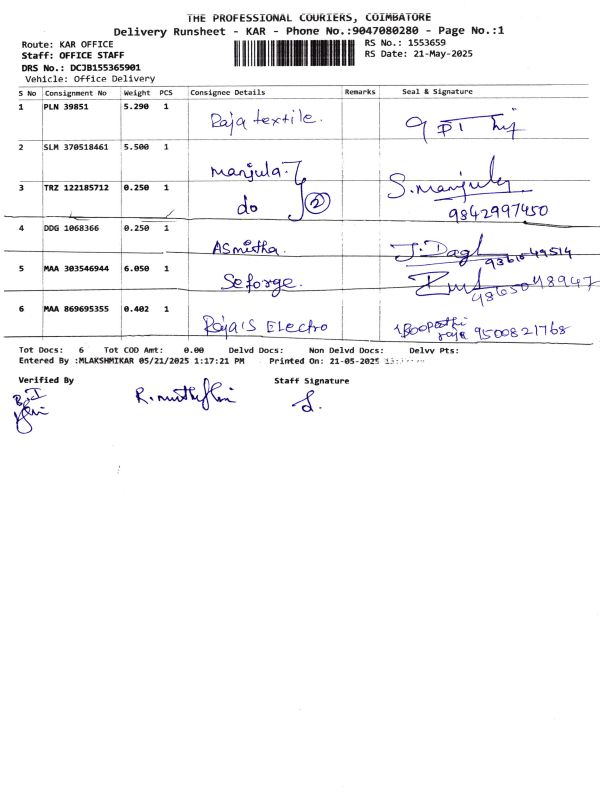 THE PROFESSIONAL COURIERS, COIMBATORE
Delivery Runsheet - KAR - Phone No.:9047080280 - Page No.:1
Route: KAR OFFICE RS No.: 1553659
Staff: OFFICE STAFF RS Date: 21-May-2025
DRS No.: DCJB155365901
Vehicle: Office Delivery
S No Consignment No Weight PCS Consignee Details Remarks Seal & Signature
1 PLN 39851 5.290 1 Raja textile.
2 SLM 370518461 5.500 1 Manjula.J S.Manjula
3 TRZ 122185712 0.250 1 do 2 9842997450
4 DDG 1068366 0.250 1 ASmitha.
5 MAA 303546944 6.050 1 Seforge.
6 MAA 869695355 0.402 1 Raja's Electro Boopathi raja 9500821768
Tot Docs: 6 Tot COD Amt: 0.00 Delvd Docs: Non Delvd Docs: Delvy Pts:
Entered By :MLAKSHMIKAR 05/21/2025 1:17:21 PM Printed On: 21-05-2025
Verified By Staff Signature